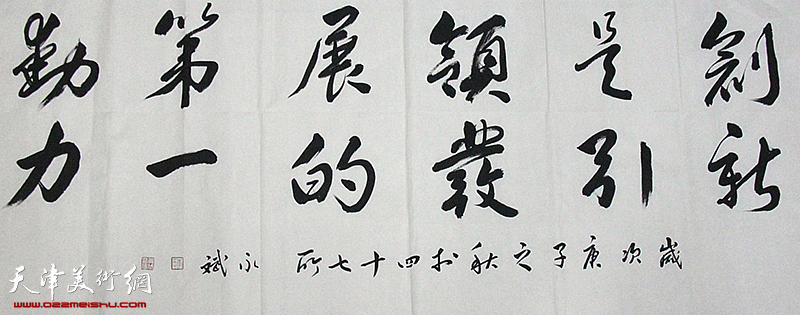 創新
是引
領發
展的
第一
動力
歲次庚子之秋於四十七所 永斌
天津美術網
www.022meishu.com